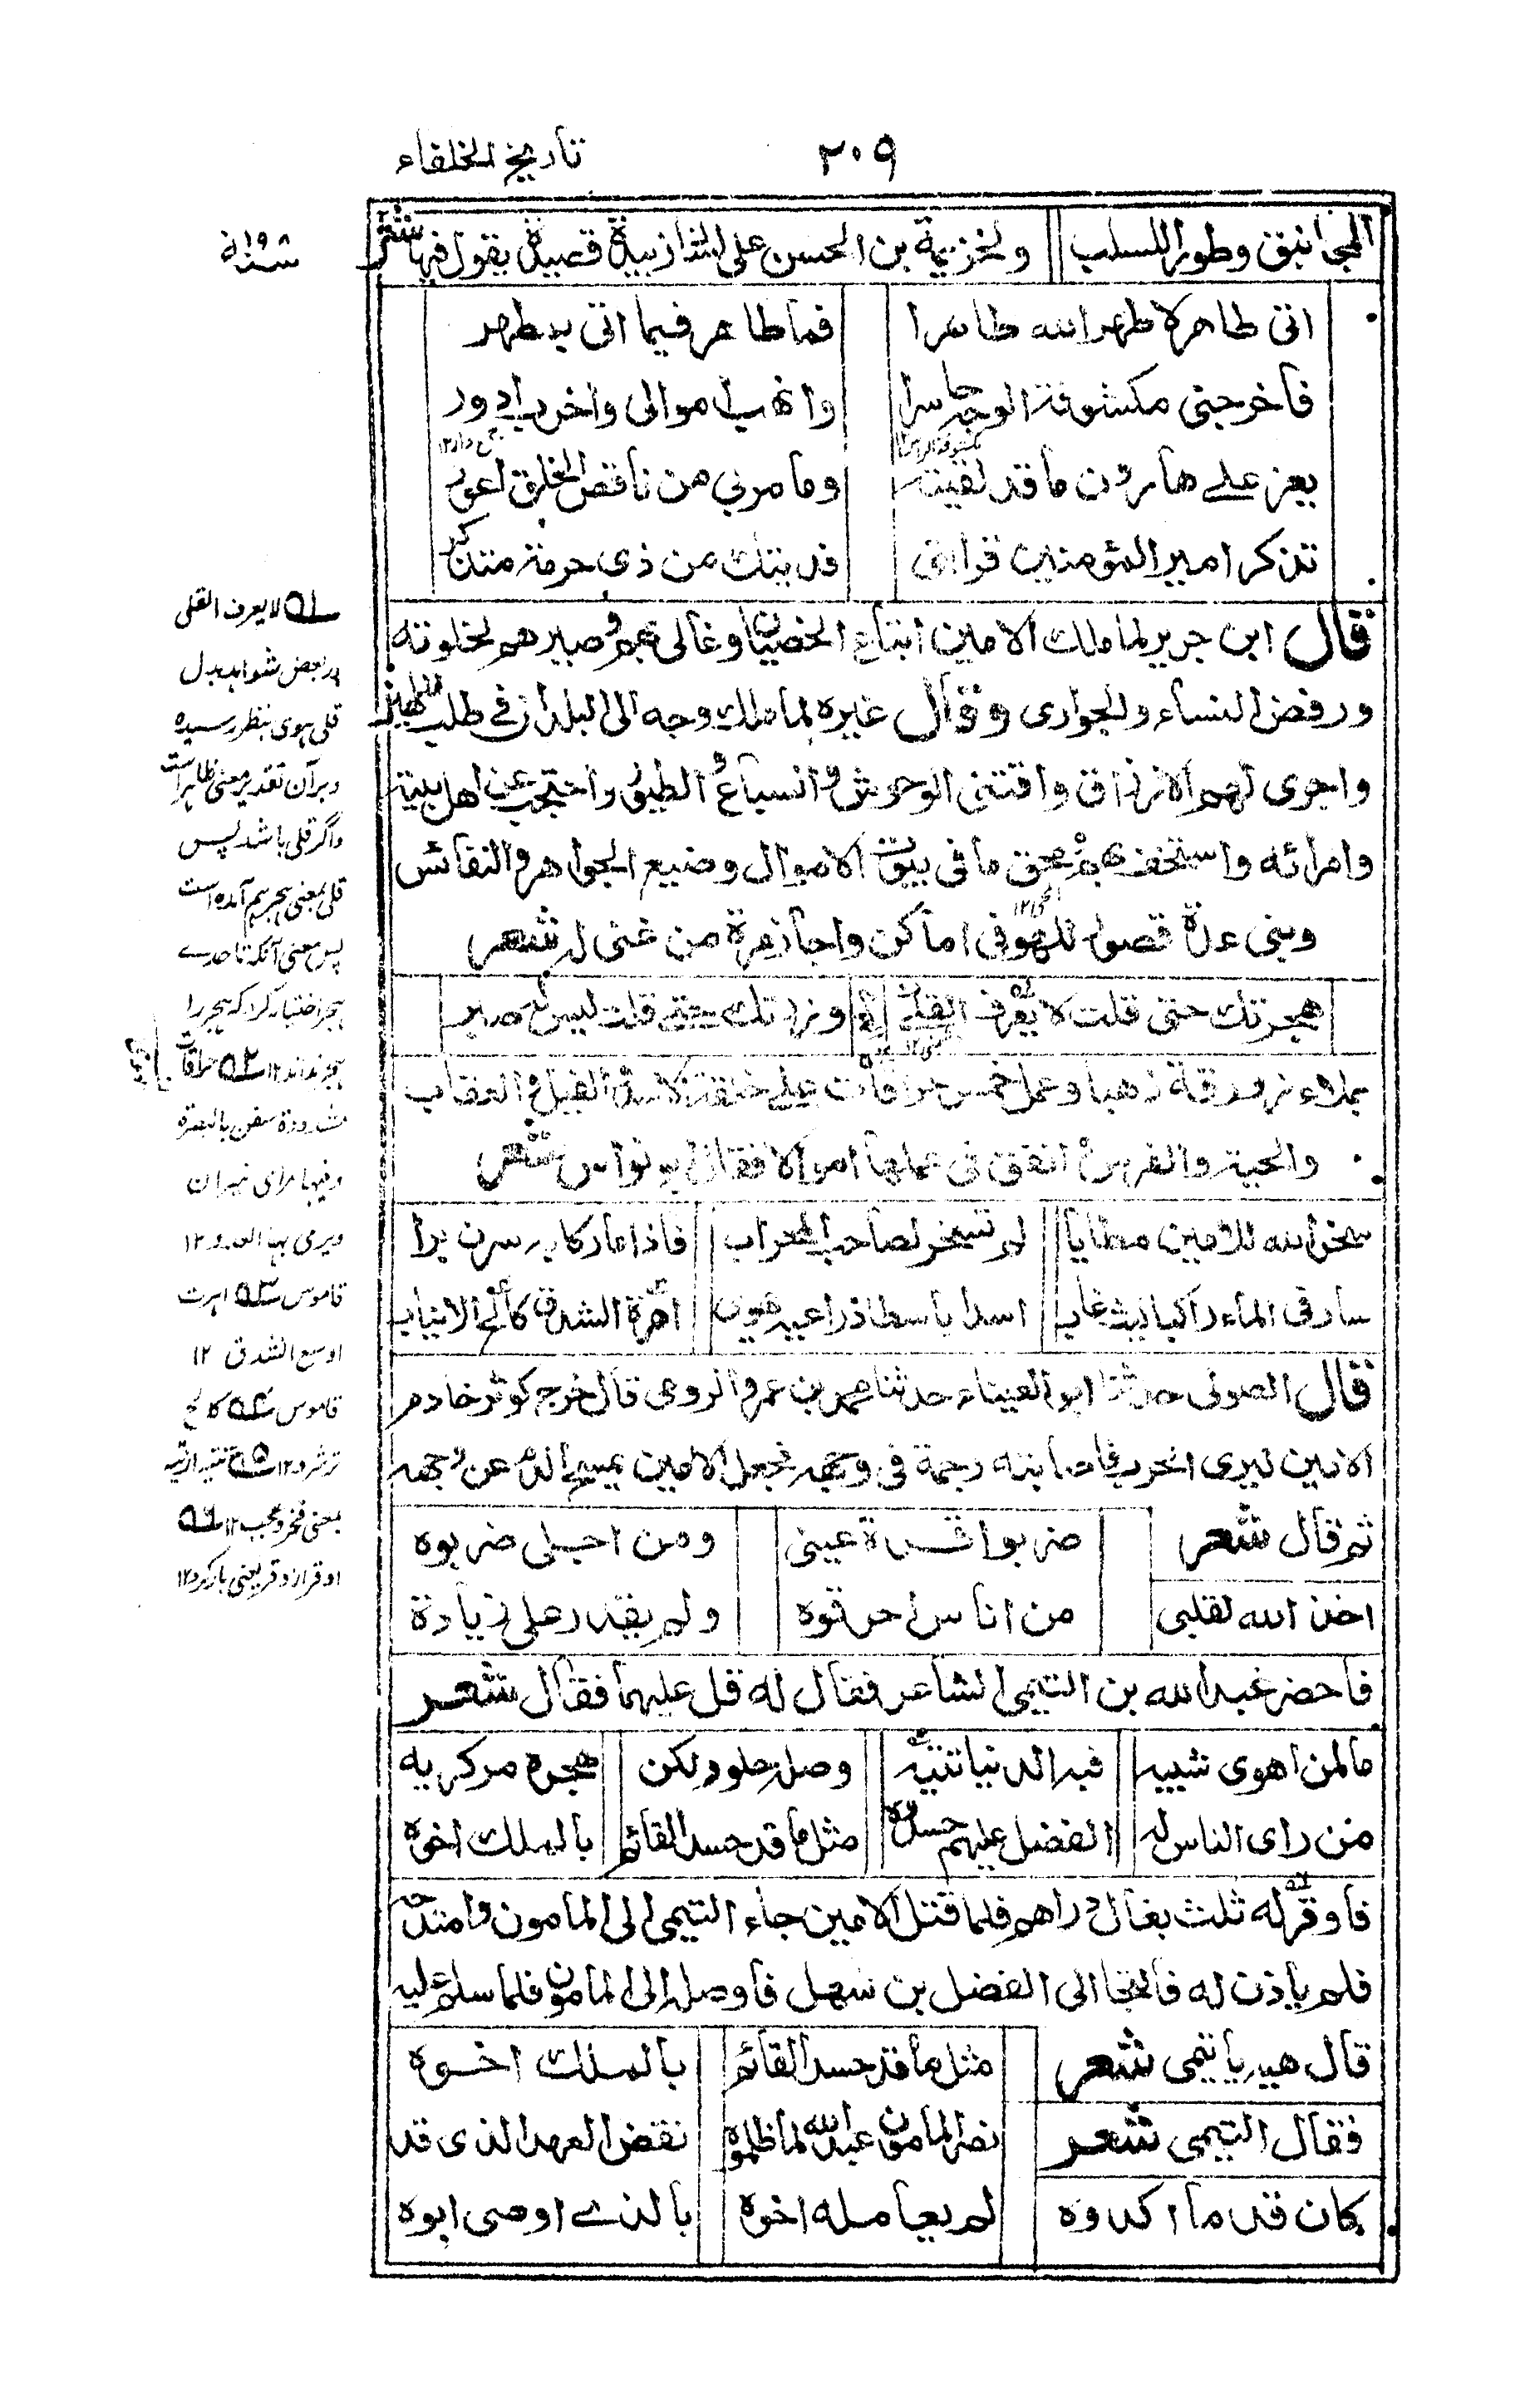 ٢٠٩
تاريخ الخلفاء
المجانيق وطورا للسلب ولخزيمة بن الحسن على لسان زبيدة قصيدة يقول فيها شعر
اتى طاهر لا طهر الله طاهرا فما طاهر فيما اتى بمطهر
فاخرجنى مكشوفة الوجه حاسرا وانهب اموالى واخرب ادور
يعز على هارون ما قد لقيته وما مر بي من ناقص الخلق اعور
تذكر امير المؤمنين قرابتى فديتك من ذى حرمة متذكر
قال ابن جرير لما ملك الامين ابتاع الخصيان وغالى بهم وصيرهم لخلوته
ورفض النساء والجوارى وقال غيره لما ملك وجه الى البلدان فى طلب الملهين
واجرى لهم الارزاق واقتنى الوحوش والسباع والطيور واحتجب عن اهل بيته
وامرائه واستخف بهم ومحق ما فى بيوت الاموال وضيع الجواهر والنفائس
وبنى عدة قصور للهو فى اماكن واجاز مرة من غنى له شعر
هجرتك حتى قلت لا يعرف القلى وزرتك حتى قلت ليس له صبر
بملاء زورقه ذهبا وعمل خمس حراقات على خلقة الاسد والفيل والعقاب
والحية والفرس وانفق فى عملها اموالا فقال ابو نواس شعر
سخر الله للامين مطايا لم تسخر لصاحب المحراب فاذا ما ركابه سرن برا
سار فى الماء راكبا ليث غاب اسدا باسطا ذراعيه يهوى اهرة الشدق كالح الانياب
قال الصولى حدثنا ابو العيناء حدثنا محمد بن عمرو الرومى قال خرج كوثر خادم
الامين ليرى الحرب فاصابته رجمة فى وجهه فجعل الامين يمسح الدم عن وجهه
ثم قال شعر ضربوا قرة عينى ومن اجلى ضربوه
اخذ الله لقلبى من اناس احرقوه ولم يقدر على زيادة
فاحضر عبد الله بن التيمى الشاعر فقال له قل عليهما فقال شعر
ما لمن اهوى شبيه فبه الدنيا تتيه وصله حلو ولكن هجره مر كريه
من راى الناس له الفضل عليهم حسدوه مثل ما قد حسد القائم بالملك اخوه
فاوقر له ثلث بغال دراهم فلما قتل الامين جاء التيمى الى المامون وامتدحه
فلم ياذن له فالتجا الى الفضل بن سهل فاوصله الى المامون فلما سلم عليه
قال هيه يا تيمى شعر مثل ما قد حسد القائم بالملك اخوه
فقال التيمى شعر نصر المامون عبد الله لما ظلموه نقض العهد الذى قد
كان قدما اكدوه لم يعامله اخوه بالذى اوصى ابوه
سنة ١٩٨
لا يعرف القلى
در بعض شواهد بدل
قلى هوى بنظر رسيده
وبرآن تقدير معنى ظاهر است
واگر قلى باشد پس
قلى بمعنى هجر هم آمده است
پس معنى آنكه تا حدے
هجر اختيار كرد كه هجر را
هجر نداند ١٢ حراقات
مشدودة سفن بالبصرة
وفيها مرامى نيران
ويرمى بها العدو ١٢
قاموس اهرت
اوسع الشدق ١٢
قاموس كالح
ترشرو ١٢ تتيه از تيه
بمعنى فخر وعجب ١٢
اوقر از وقر يعنى بار كرد ١٢